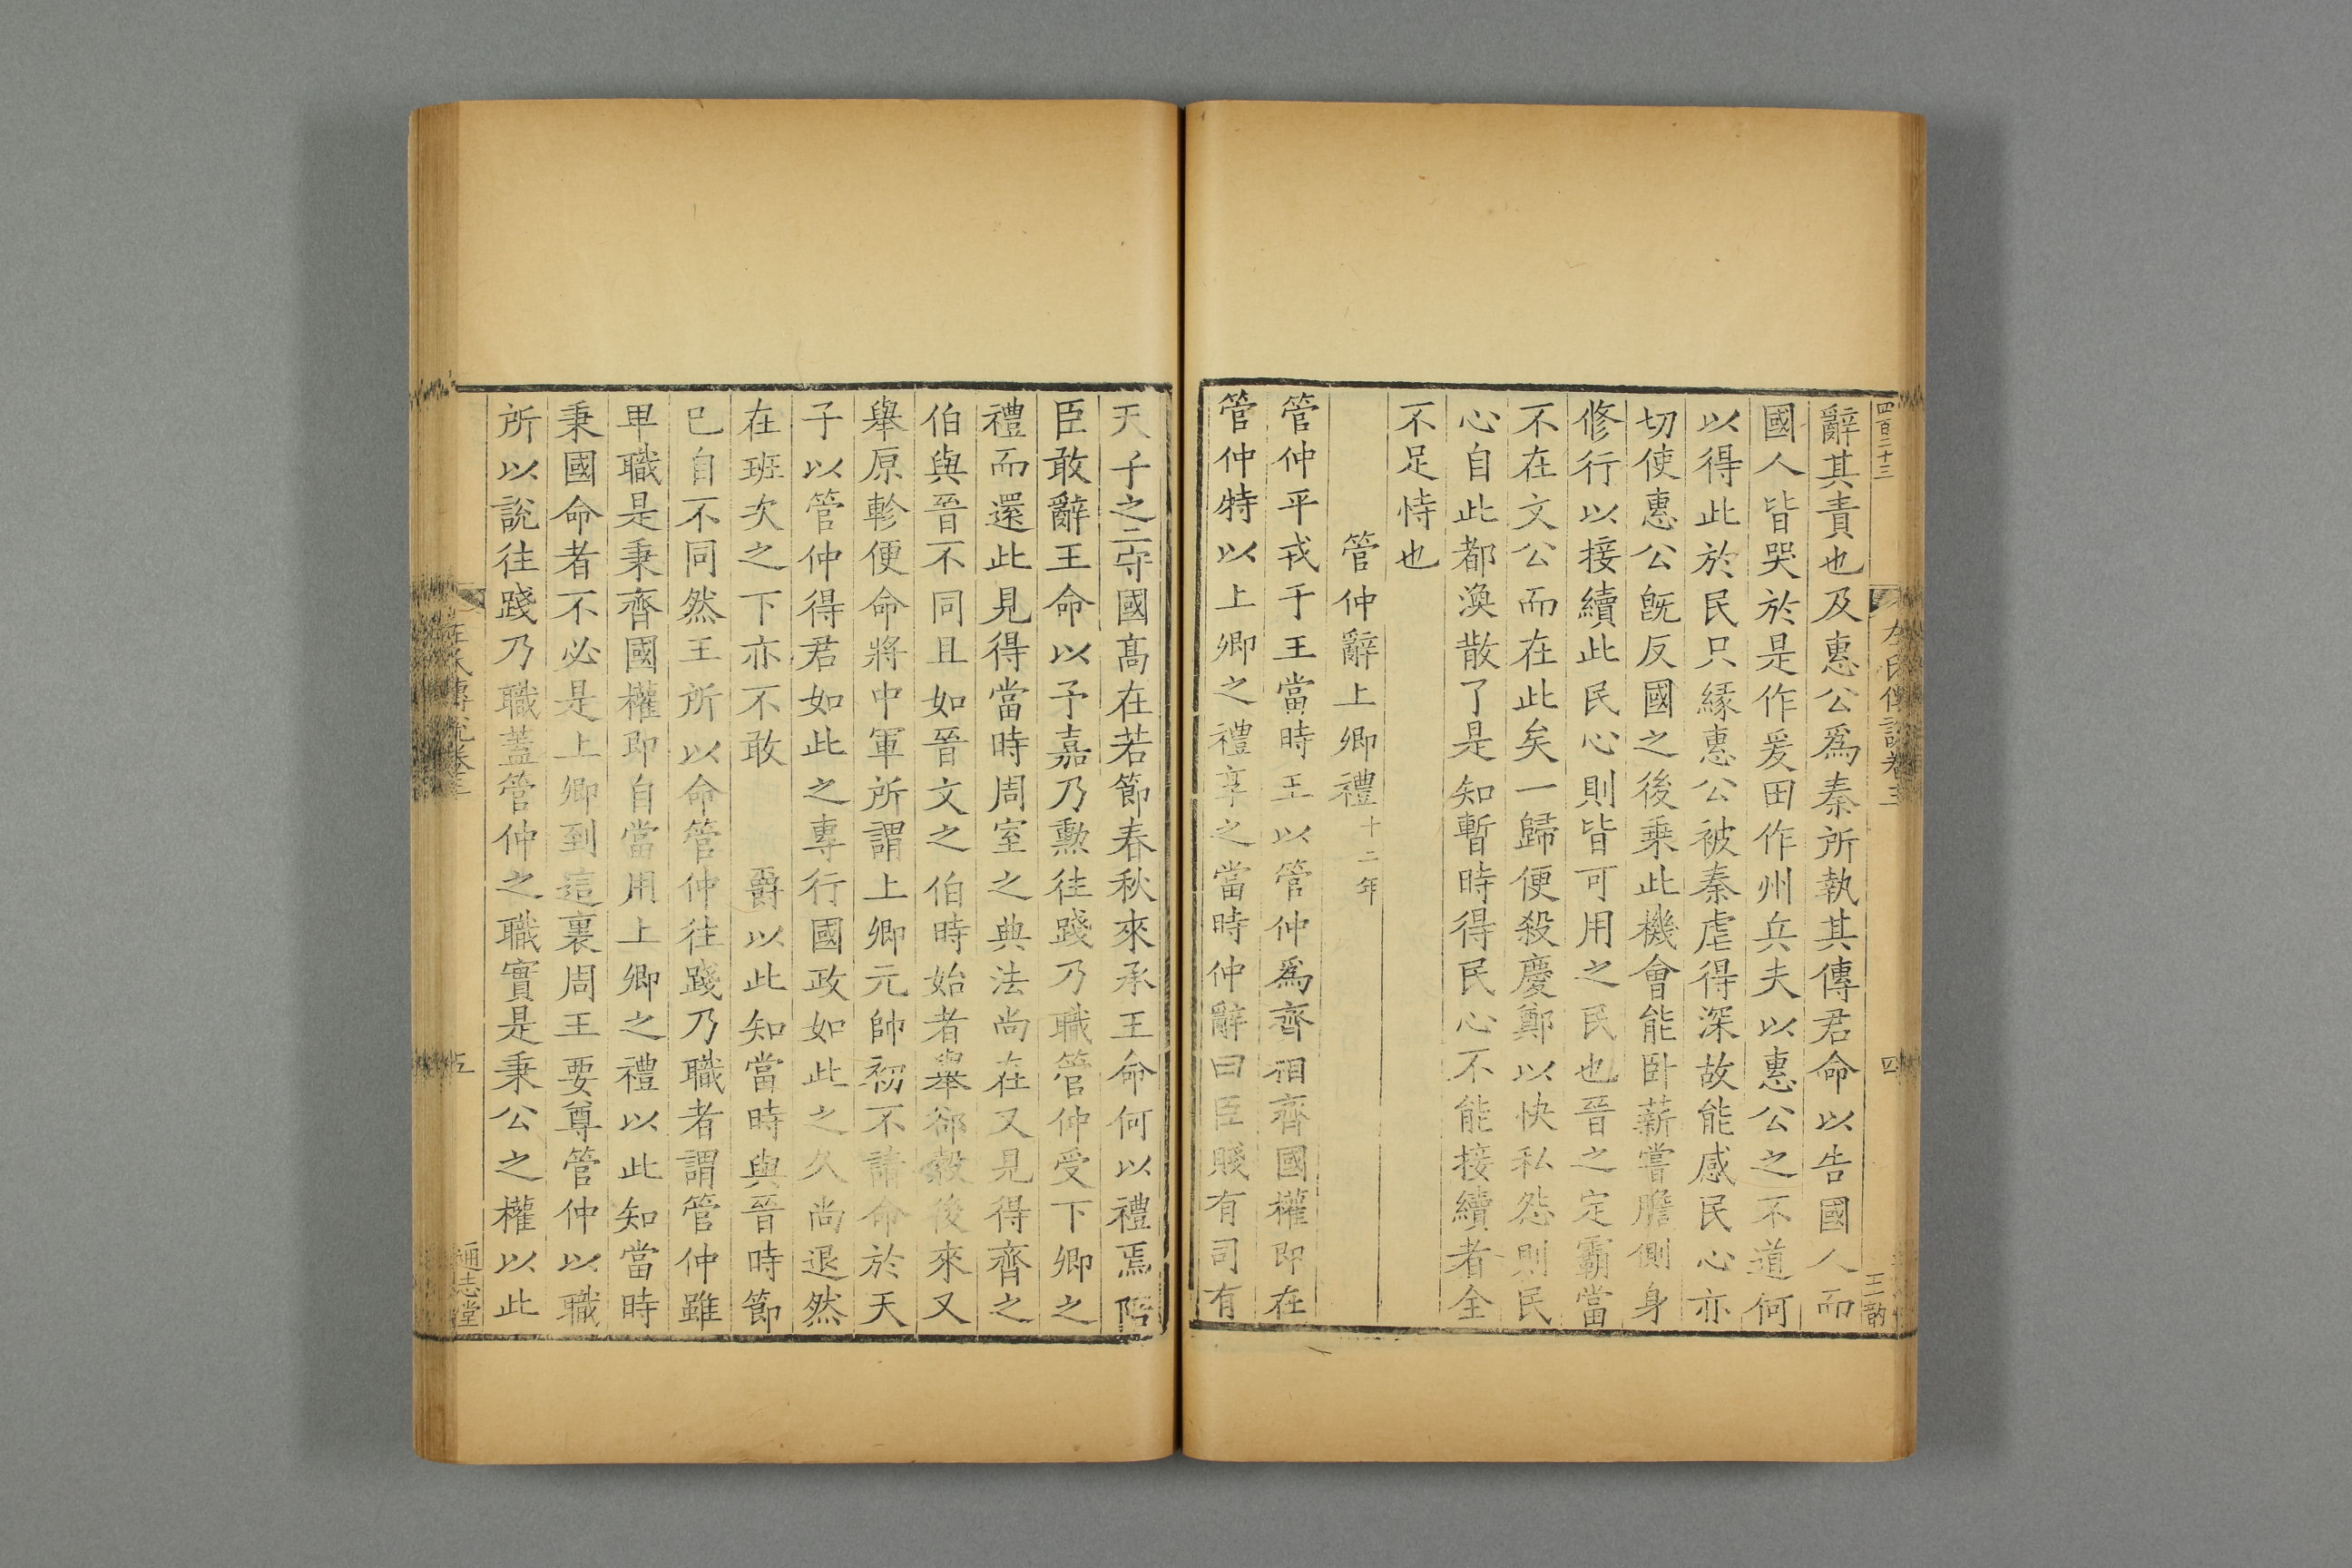 四百二十三
左氏傳說卷三
四
王酌
辭其責也及惠公爲秦所執其傳君命以告國人而
國人皆哭於是作爰田作州兵夫以惠公之不道何
以得此於民只緣惠公被秦虐得深故能感民心亦
切使惠公旣反國之後乗此機會能卧薪嘗膽側身
修行以接續此民心則皆可用之民也晉之定霸當
不在文公而在此矣一歸便殺慶鄭以快私怨則民
心自此都渙散了是知暫時得民心不能接續者全
不足恃也
管仲辭上卿禮十二年
管仲平戎于王當時王以管仲爲齊相齊國權即在
管仲特以上卿之禮享之當時仲辭曰臣賤有司有
天子之二守國髙在若節春秋來承王命何以禮焉陪
臣敢辭王命以予嘉乃勲往踐乃職管仲受下卿之
禮而還此見得當時周室之典法尚在又見得齊之
伯與晉不同且如晉文之伯時始者舉郤縠後來又
舉原軫便命將中軍所謂上卿元帥初不請命於天
子以管仲得君如此之專行國政如此之久尚退然
在班次之下亦不敢爵以此知當時與晉時節
已自不同然王所以命管仲往踐乃職者謂管仲雖
卑職是秉齊國權即自當用上卿之禮以此知當時
秉國命者不必是上卿到這裏周王要尊管仲以職
所以說往踐乃職蓋管仲之職實是秉公之權以此
左氏傳說卷三
五
通志堂